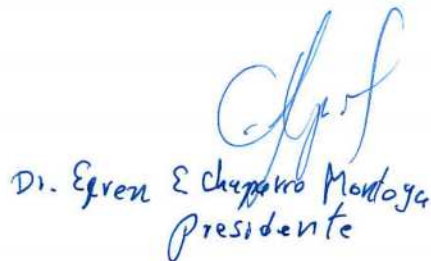 Dr. Efren E Chaparro Montoya
Presidente